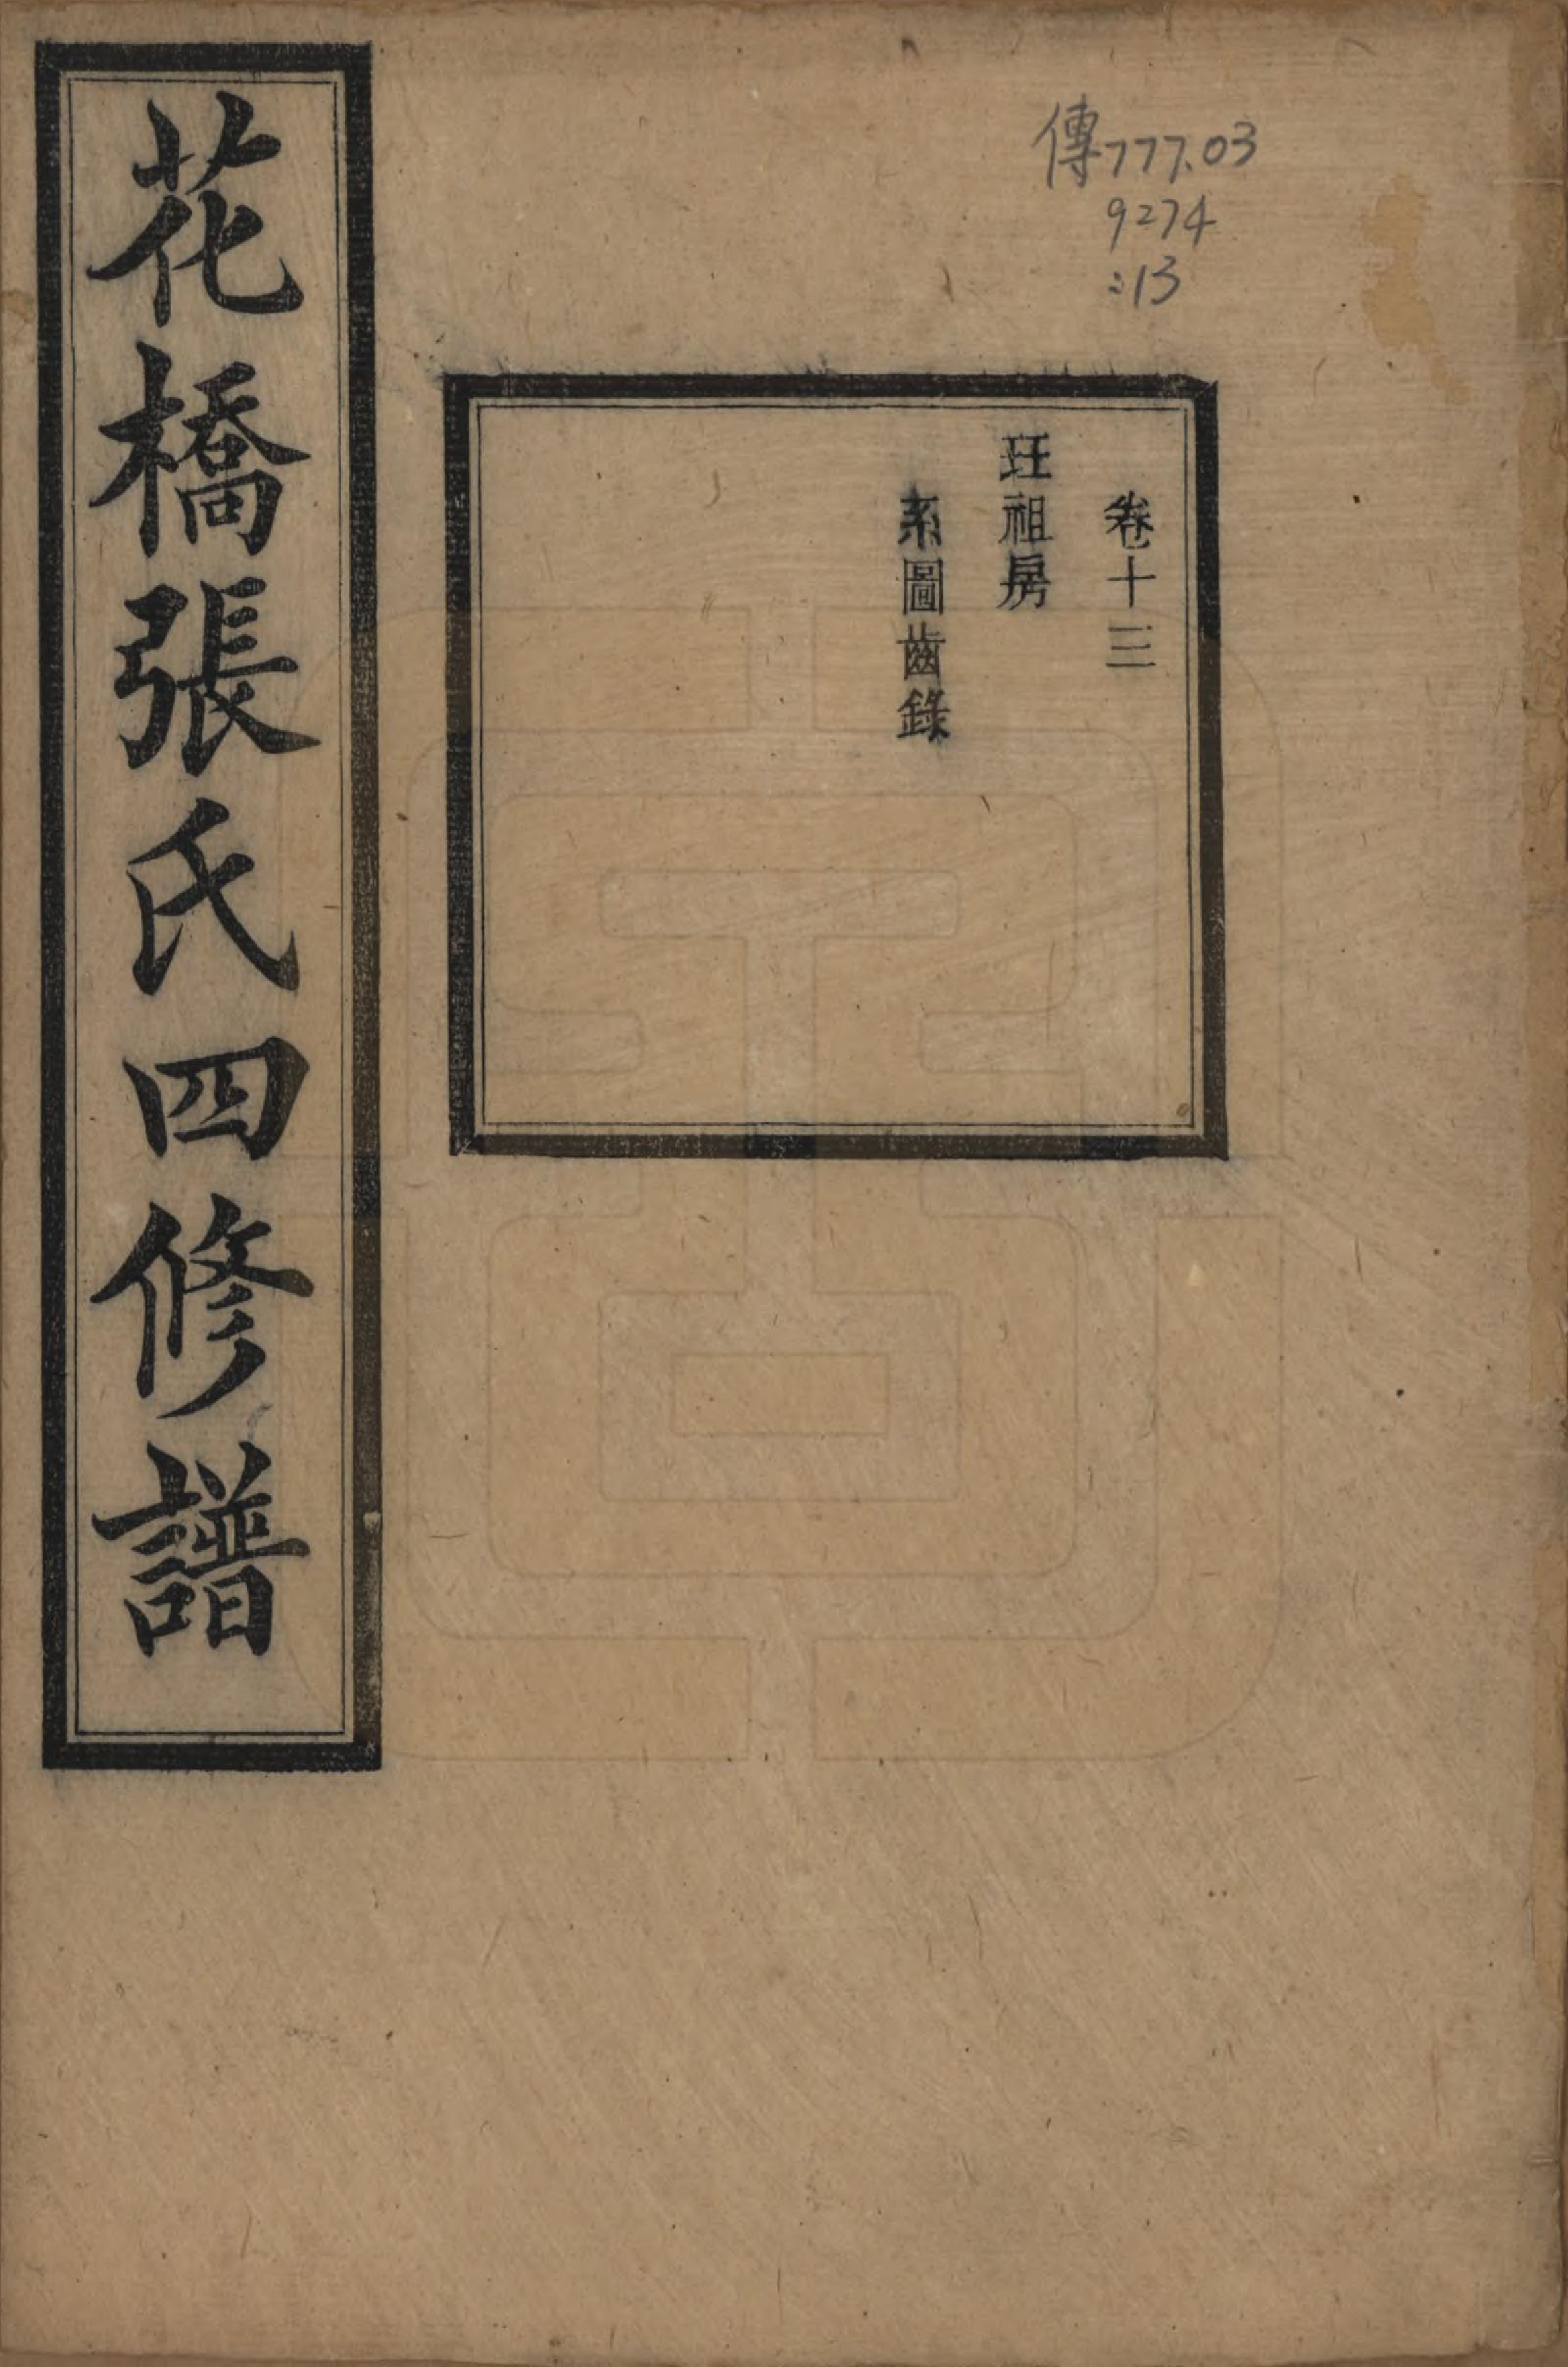 傳777.03
9274
:13
卷十三
玨祖房
系圖齒錄
花橋張氏四修譜